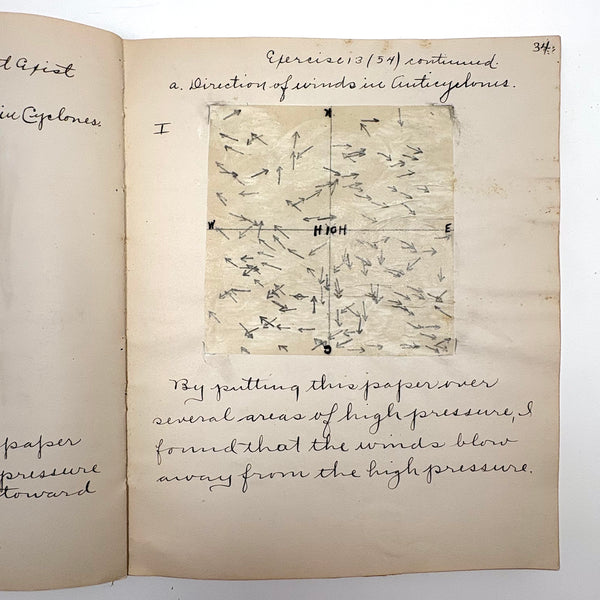 in Cyclones.
paper
pressure
toward
34.
Exercise 13 (54) continued.
a. Direction of winds in Anticyclones.
I
N
W HIGH E
S
By putting this paper over
several areas of high pressure, I
found that the winds blow
away from the high pressure.